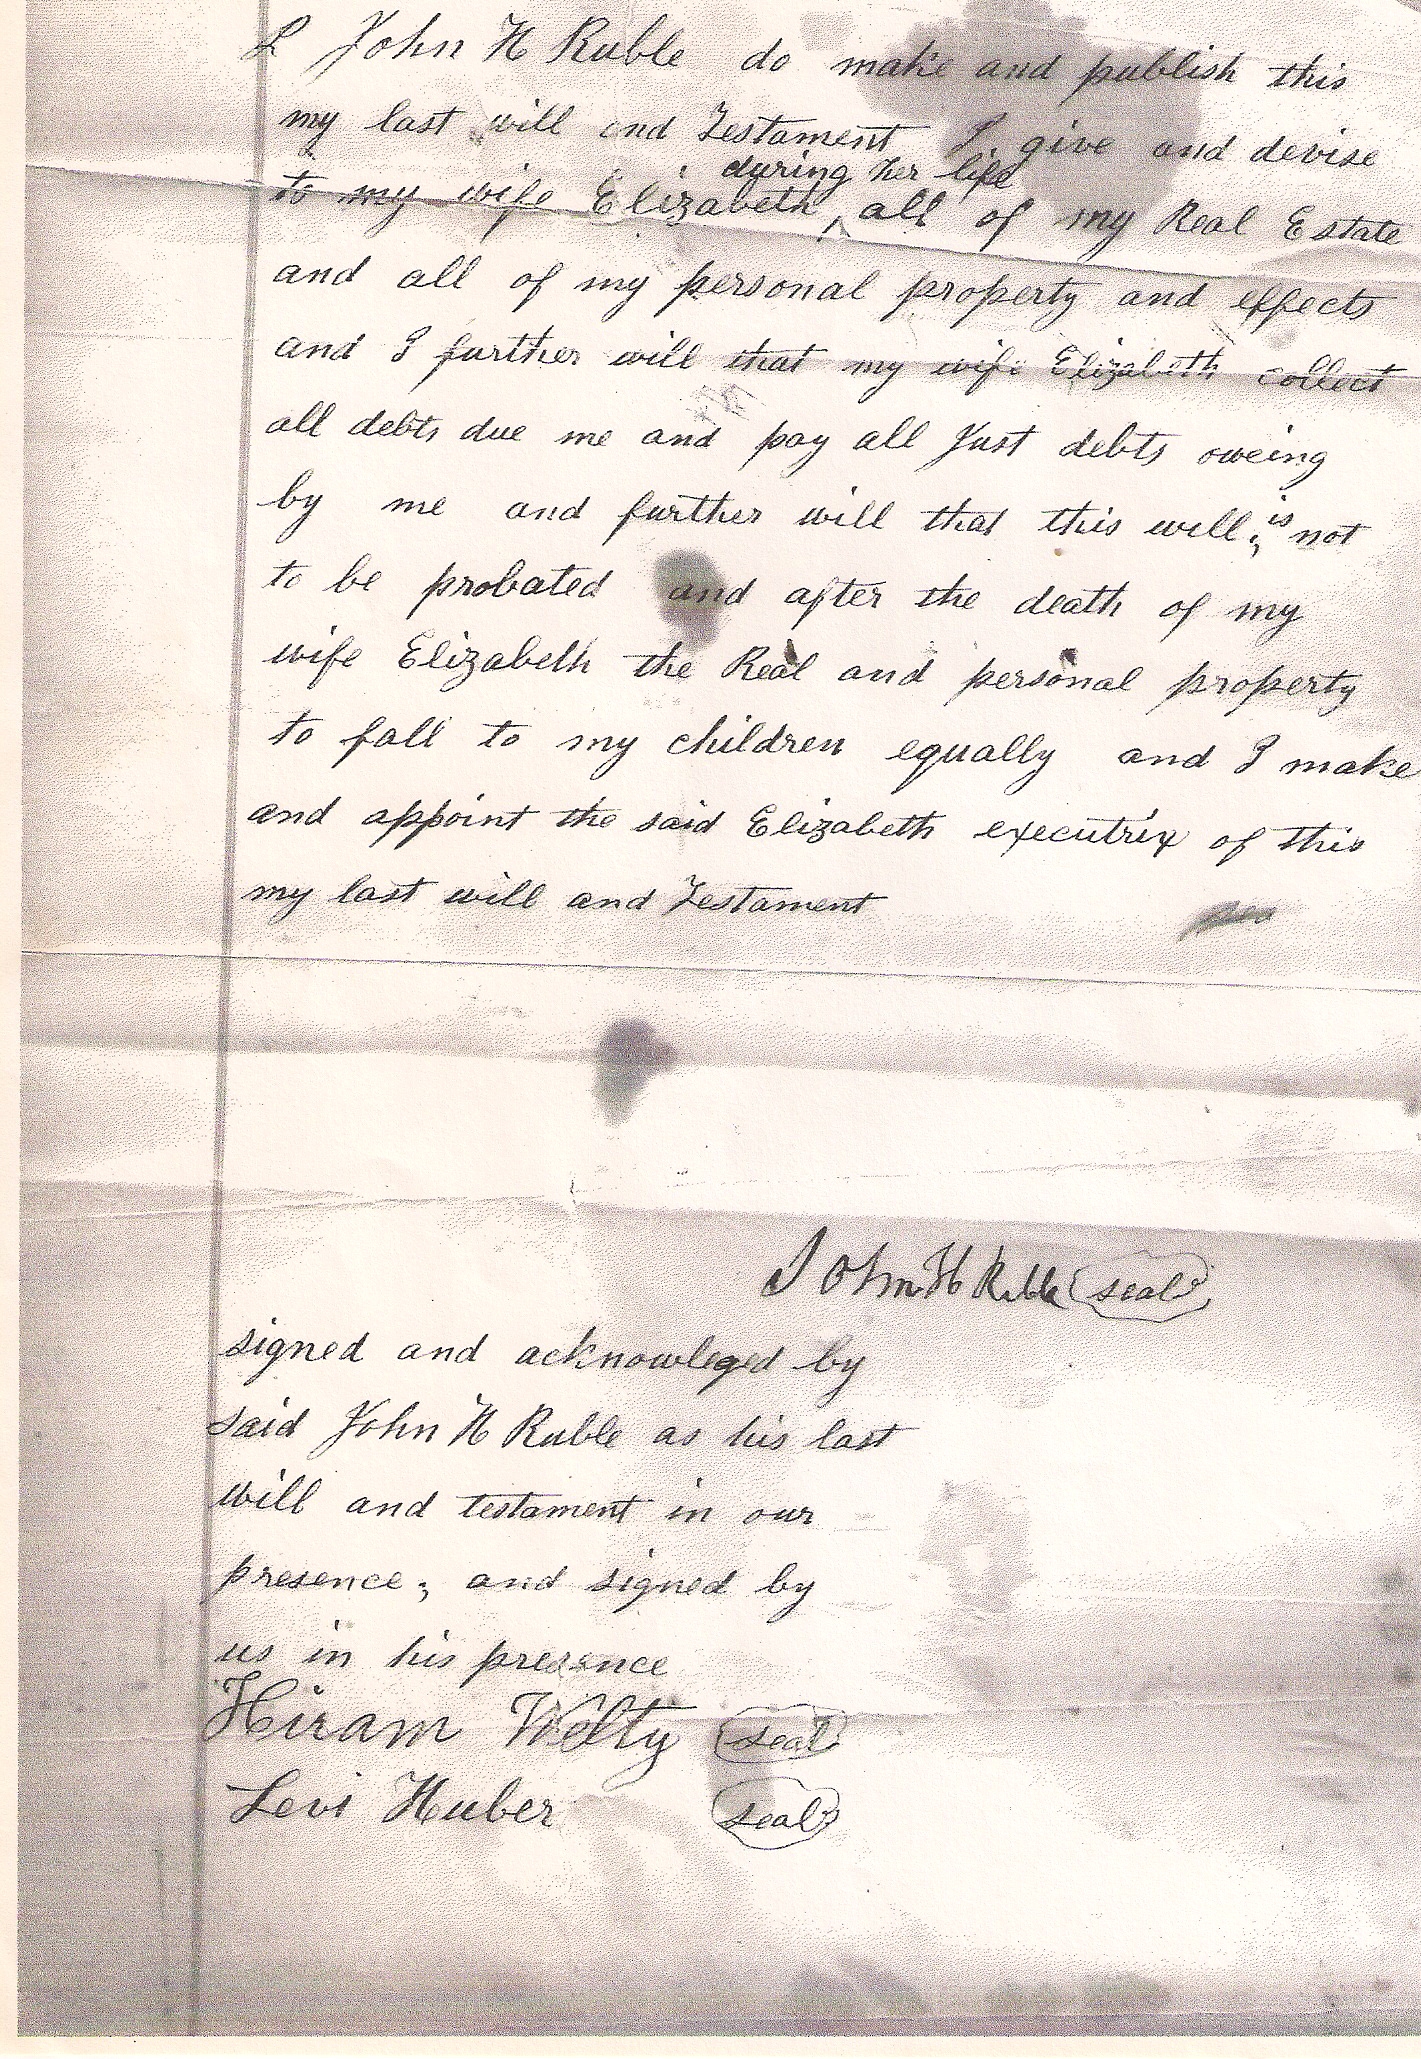 I John H Ruble do make and publish this
my last will and Testament I give and devise
during her life
to my wife Elizabeth, all of my Real Estate
and all of my personal property and effects
and I further will that my wife Elizabeth collect
all debts due me and pay all Just debts oweing
by me and further will that this will, is not
to be probated and after the death of my
wife Elizabeth the Real and personal property
to fall to my children equally and I make
and appoint the said Elizabeth executrix of this
my last will and Testament
John H Ruble seal
signed and acknowleged by
said John H Ruble as his last
will and testament in our
presence; and signed by
us in his presence
Hiram Welty seal
Levi Huber seal